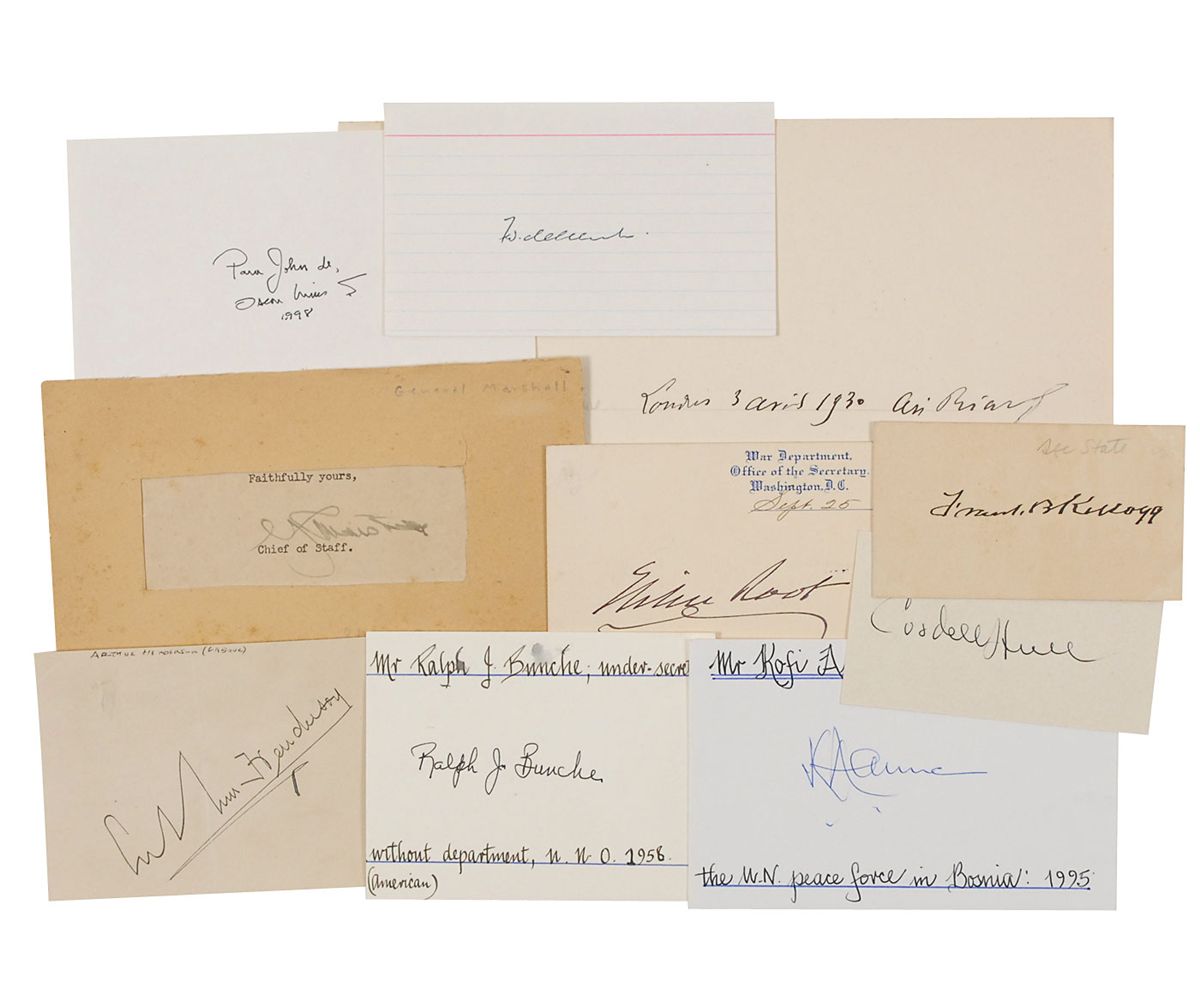 Para John de,
Oscar Arias S
1998
F. W. de Klerk
General Marshall
Faithfully yours,
G. C. Marshall
Chief of Staff.
Londres 3 avril 1930 Ari Briand
War Department,
Office of the Secretary.
Washington, D.C.
Sept. 25
Elihu Root
Sec State
Frank B Kellogg
Cordell Hull
ARTHUR HENDERSON
Arthur Henderson
Mr Ralph J. Bunche; under-secre
Ralph J. Bunche
without department, U. N. O. 1958.
(American)
Mr Kofi A
K A Annan
the U.N. peace force in Bosnia: 1995